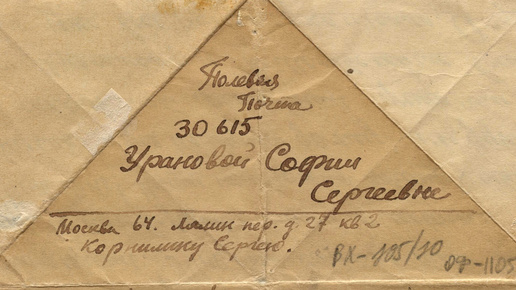 Полевая
Почта
30615
Урановой Софии
Сергеевне
Москва 64. Лялин пер. д. 27 кв 2
Корнилину Сергею.
ВХ-105/10
ОФ-1105